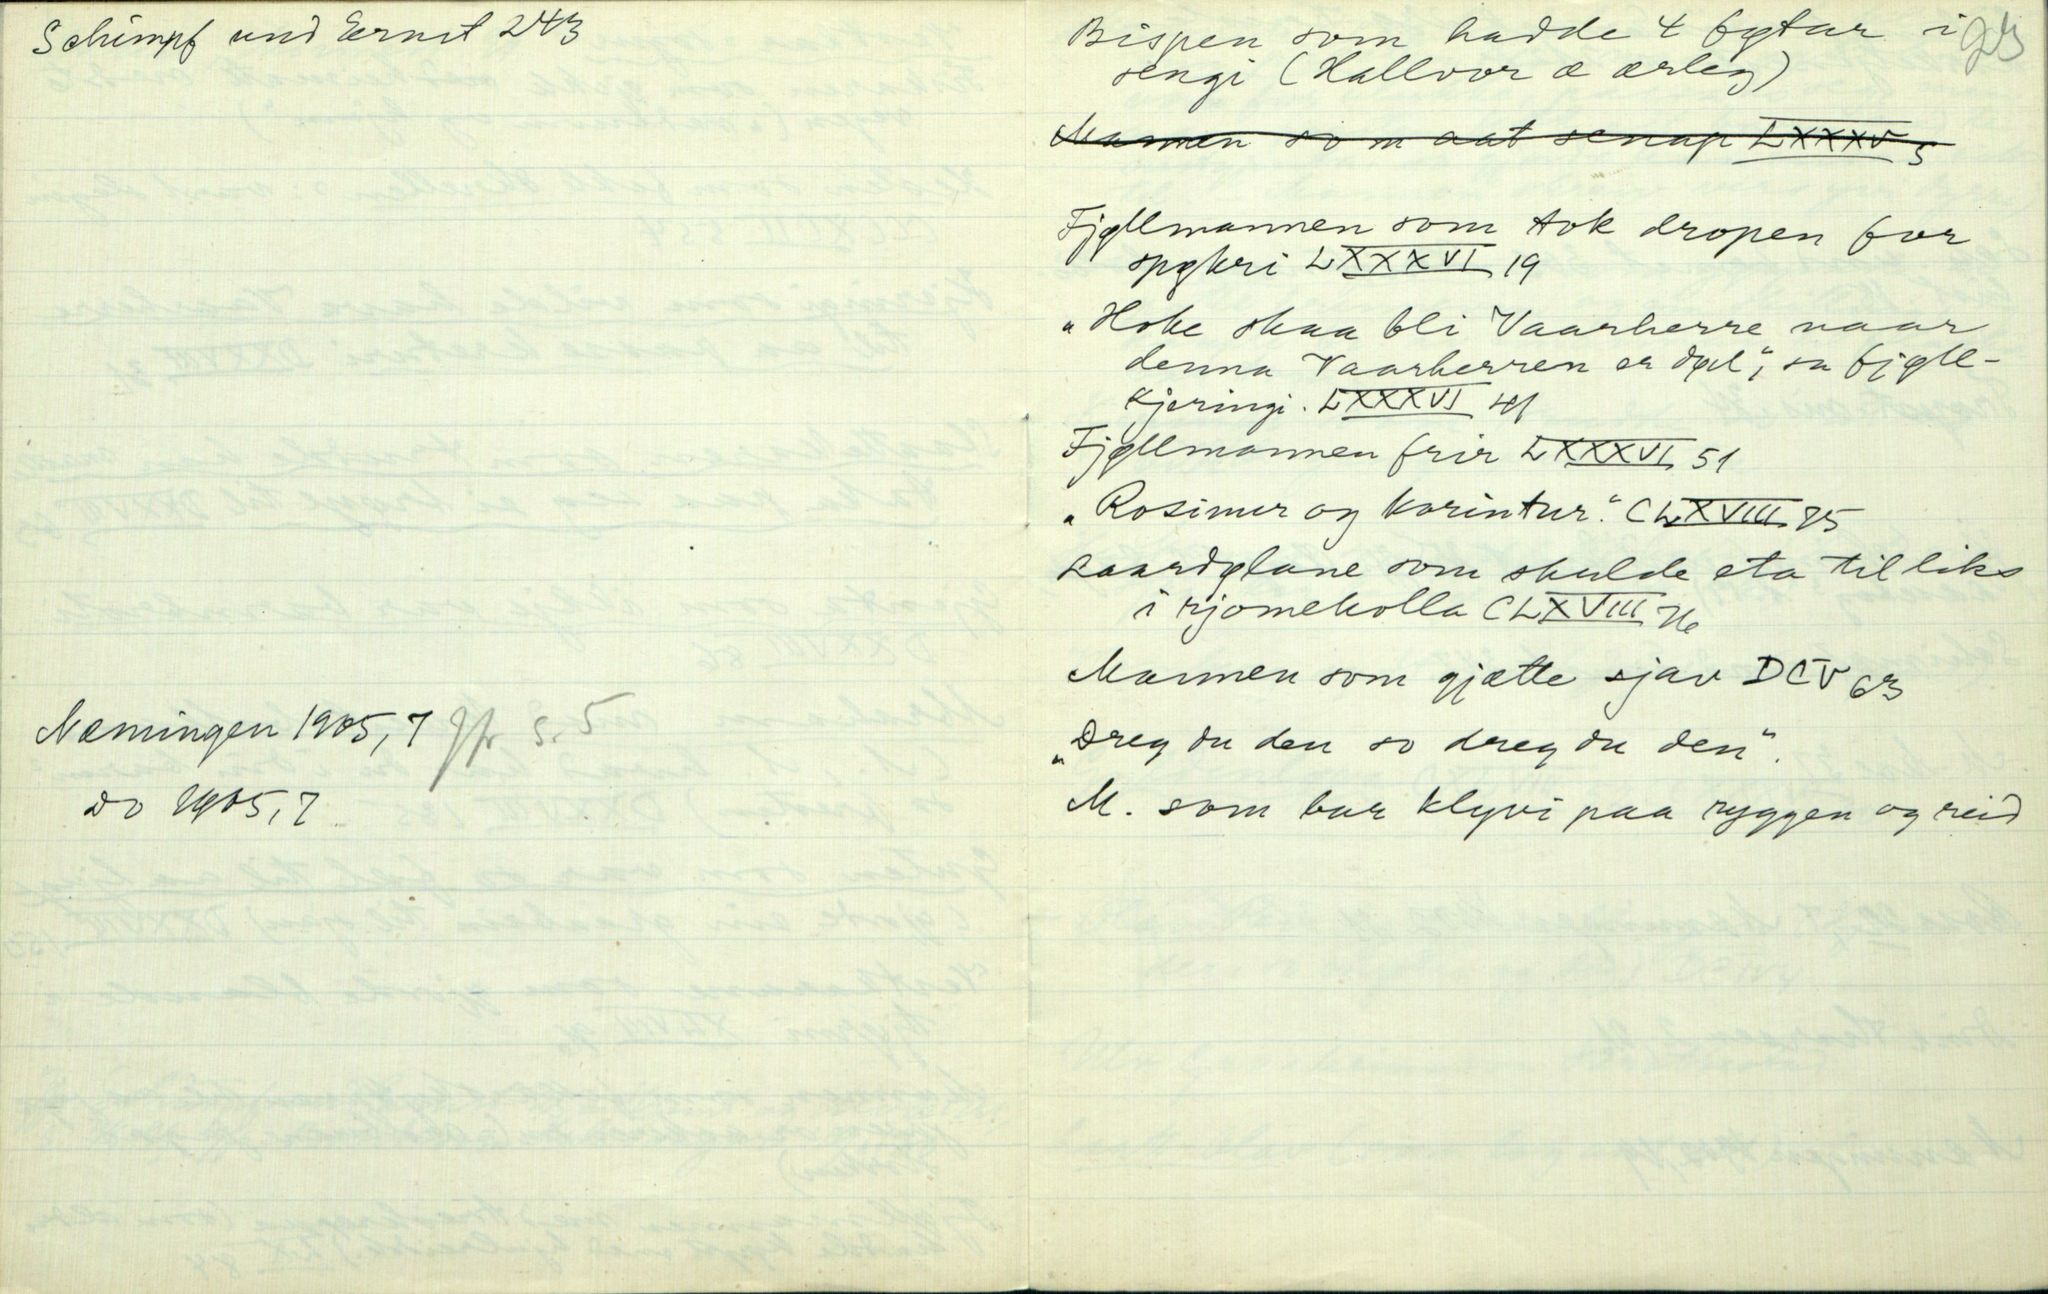 Schimpf und Ernst 243
Næmingen 1905, 7 Jfr s. 5
Do 1905, 7
Bispen som hadde 4 føtar i
sengi (Hallvor æ ærleg)
Mannen som aat senap LXXXV 5
Fjøllmannen som tok dropen for
spøkri LXXXVI 19
"Hoke skaa bli Vaarherre naar
denna Vaarherren er død", sa fjøll-
kjeringi. LXXXVI 41
Fjøllmannen frir LXXXVI 51
"Rosimer og korintur." CLXVIII 75
Laardølane som skulde eta til liks
i rjomekolla CLXVIII 76
Mannen som gjætte sjav DCV 63
"Dreg du den so dreg du den".
M. som bar klyvi paa ryggen og reid